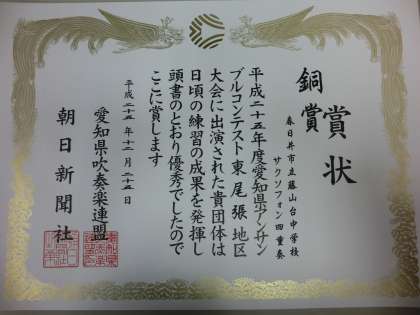 賞状
銅賞
春日井市立藤山台中学校
サクソフォン四重奏
平成二十五年度愛知県アンサン
ブルコンテスト東尾張地区
大会に出演された貴団体は
日頃の練習の成果を発揮し
頭書のとおり優秀でしたので
ここに賞します
平成二十五年十二月二十五日
愛知県吹奏楽連盟
朝日新聞社